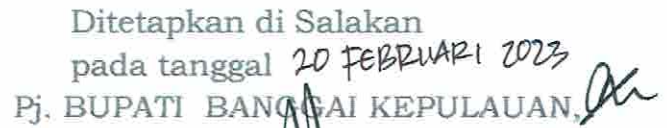 Ditetapkan di Salakan
pada tanggal 20 FEBRUARI 2023
Pj. BUPATI BANGGAI KEPULAUAN,